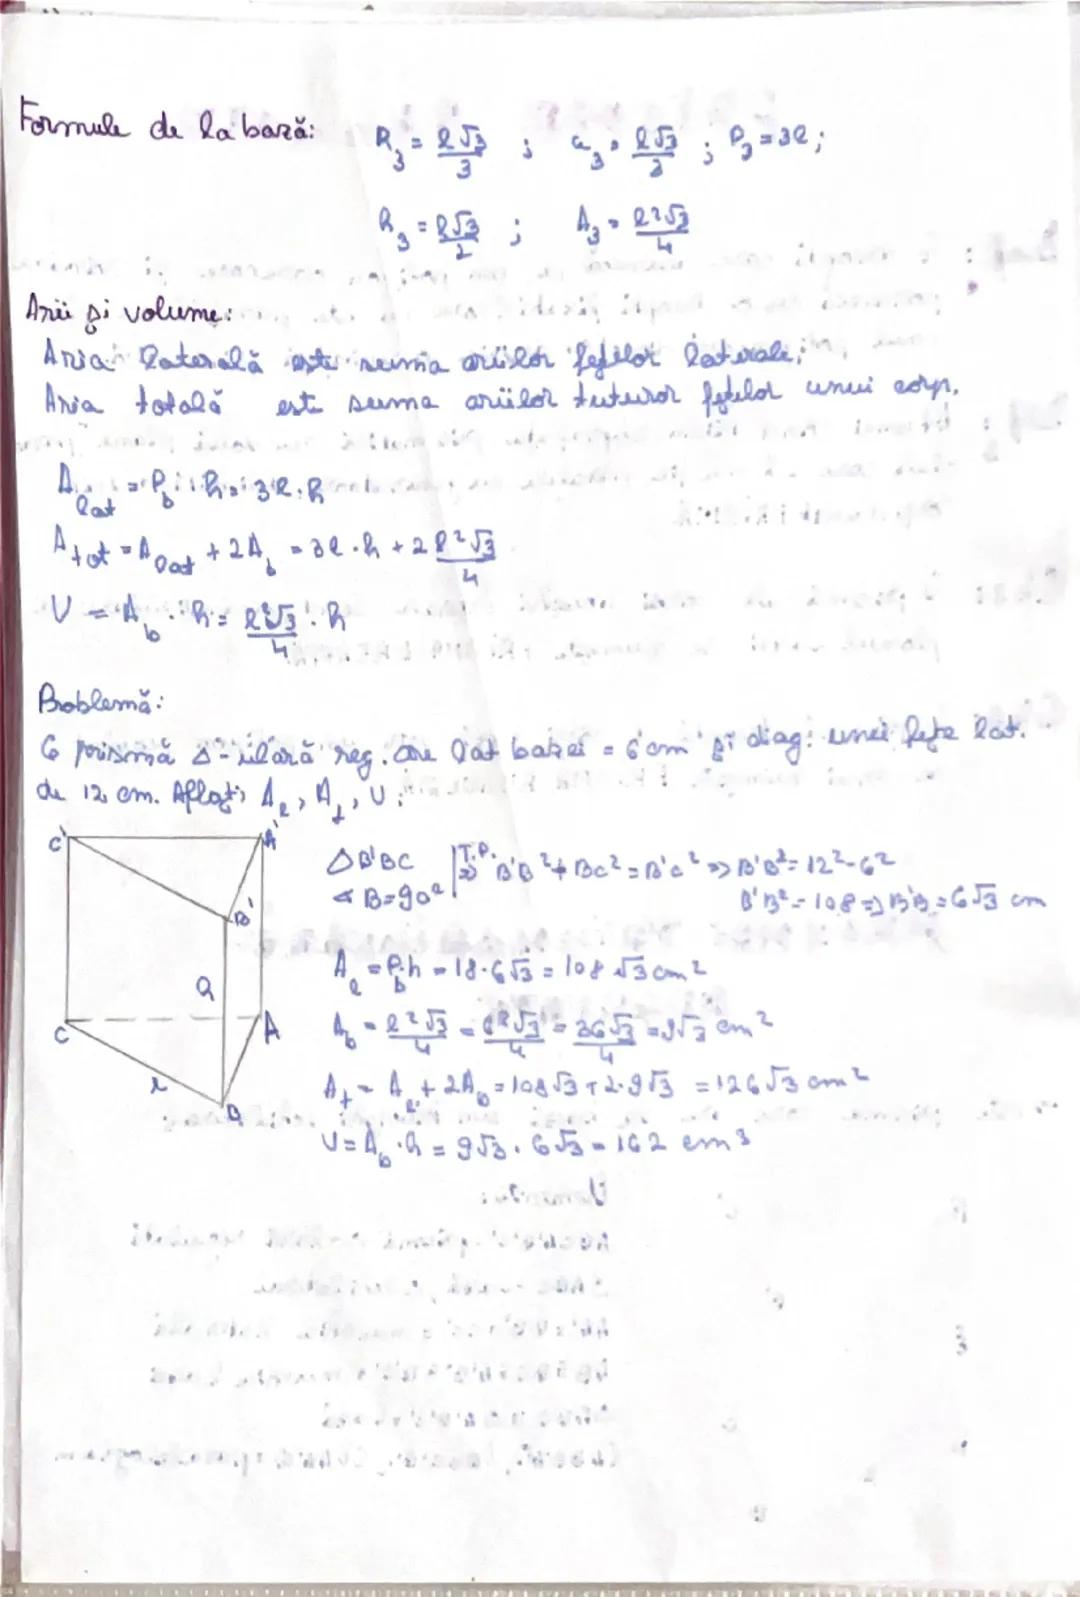 Formule de la bază: R₃ = l√3/3 ; a₃ = l√3/3 ; P₃ = 3l;
h₃ = l√3/2 ; A₃ = l²√3/4
Arii și volume:
Aria laterală este suma ariilor fețelor laterale;
Aria totală este suma ariilor tuturor fețelor unui corp.
A_lat = P_b · h = 3l · h
A_tot = A_lat + 2A_b = 3l · h + 2 l²√3/4
V = A_b · h = l²√3/4 · h
Problemă:
O prismă Δ-ulară reg. are lat bazei = 6 cm și diag. unei fețe lat.
de 12 cm. Aflați A_l, A_t, V.
C' A'
B'
h
C A
l
B
ΔB'BC |T.P. ⇒ B'B² + BC² = B'C² => B'B² = 12² - 6²
∢B = 90° B'B² = 108 => B'B = 6√3 cm
A_l = P_b · h = 18 · 6√3 = 108√3 cm²
A_b = l²√3/4 = 6²√3/4 = 36√3/4 = 9√3 cm²
A_t = A_l + 2A_b = 108√3 + 2·9√3 = 126√3 cm²
V = A_b · h = 9√3 · 6√3 = 162 cm³